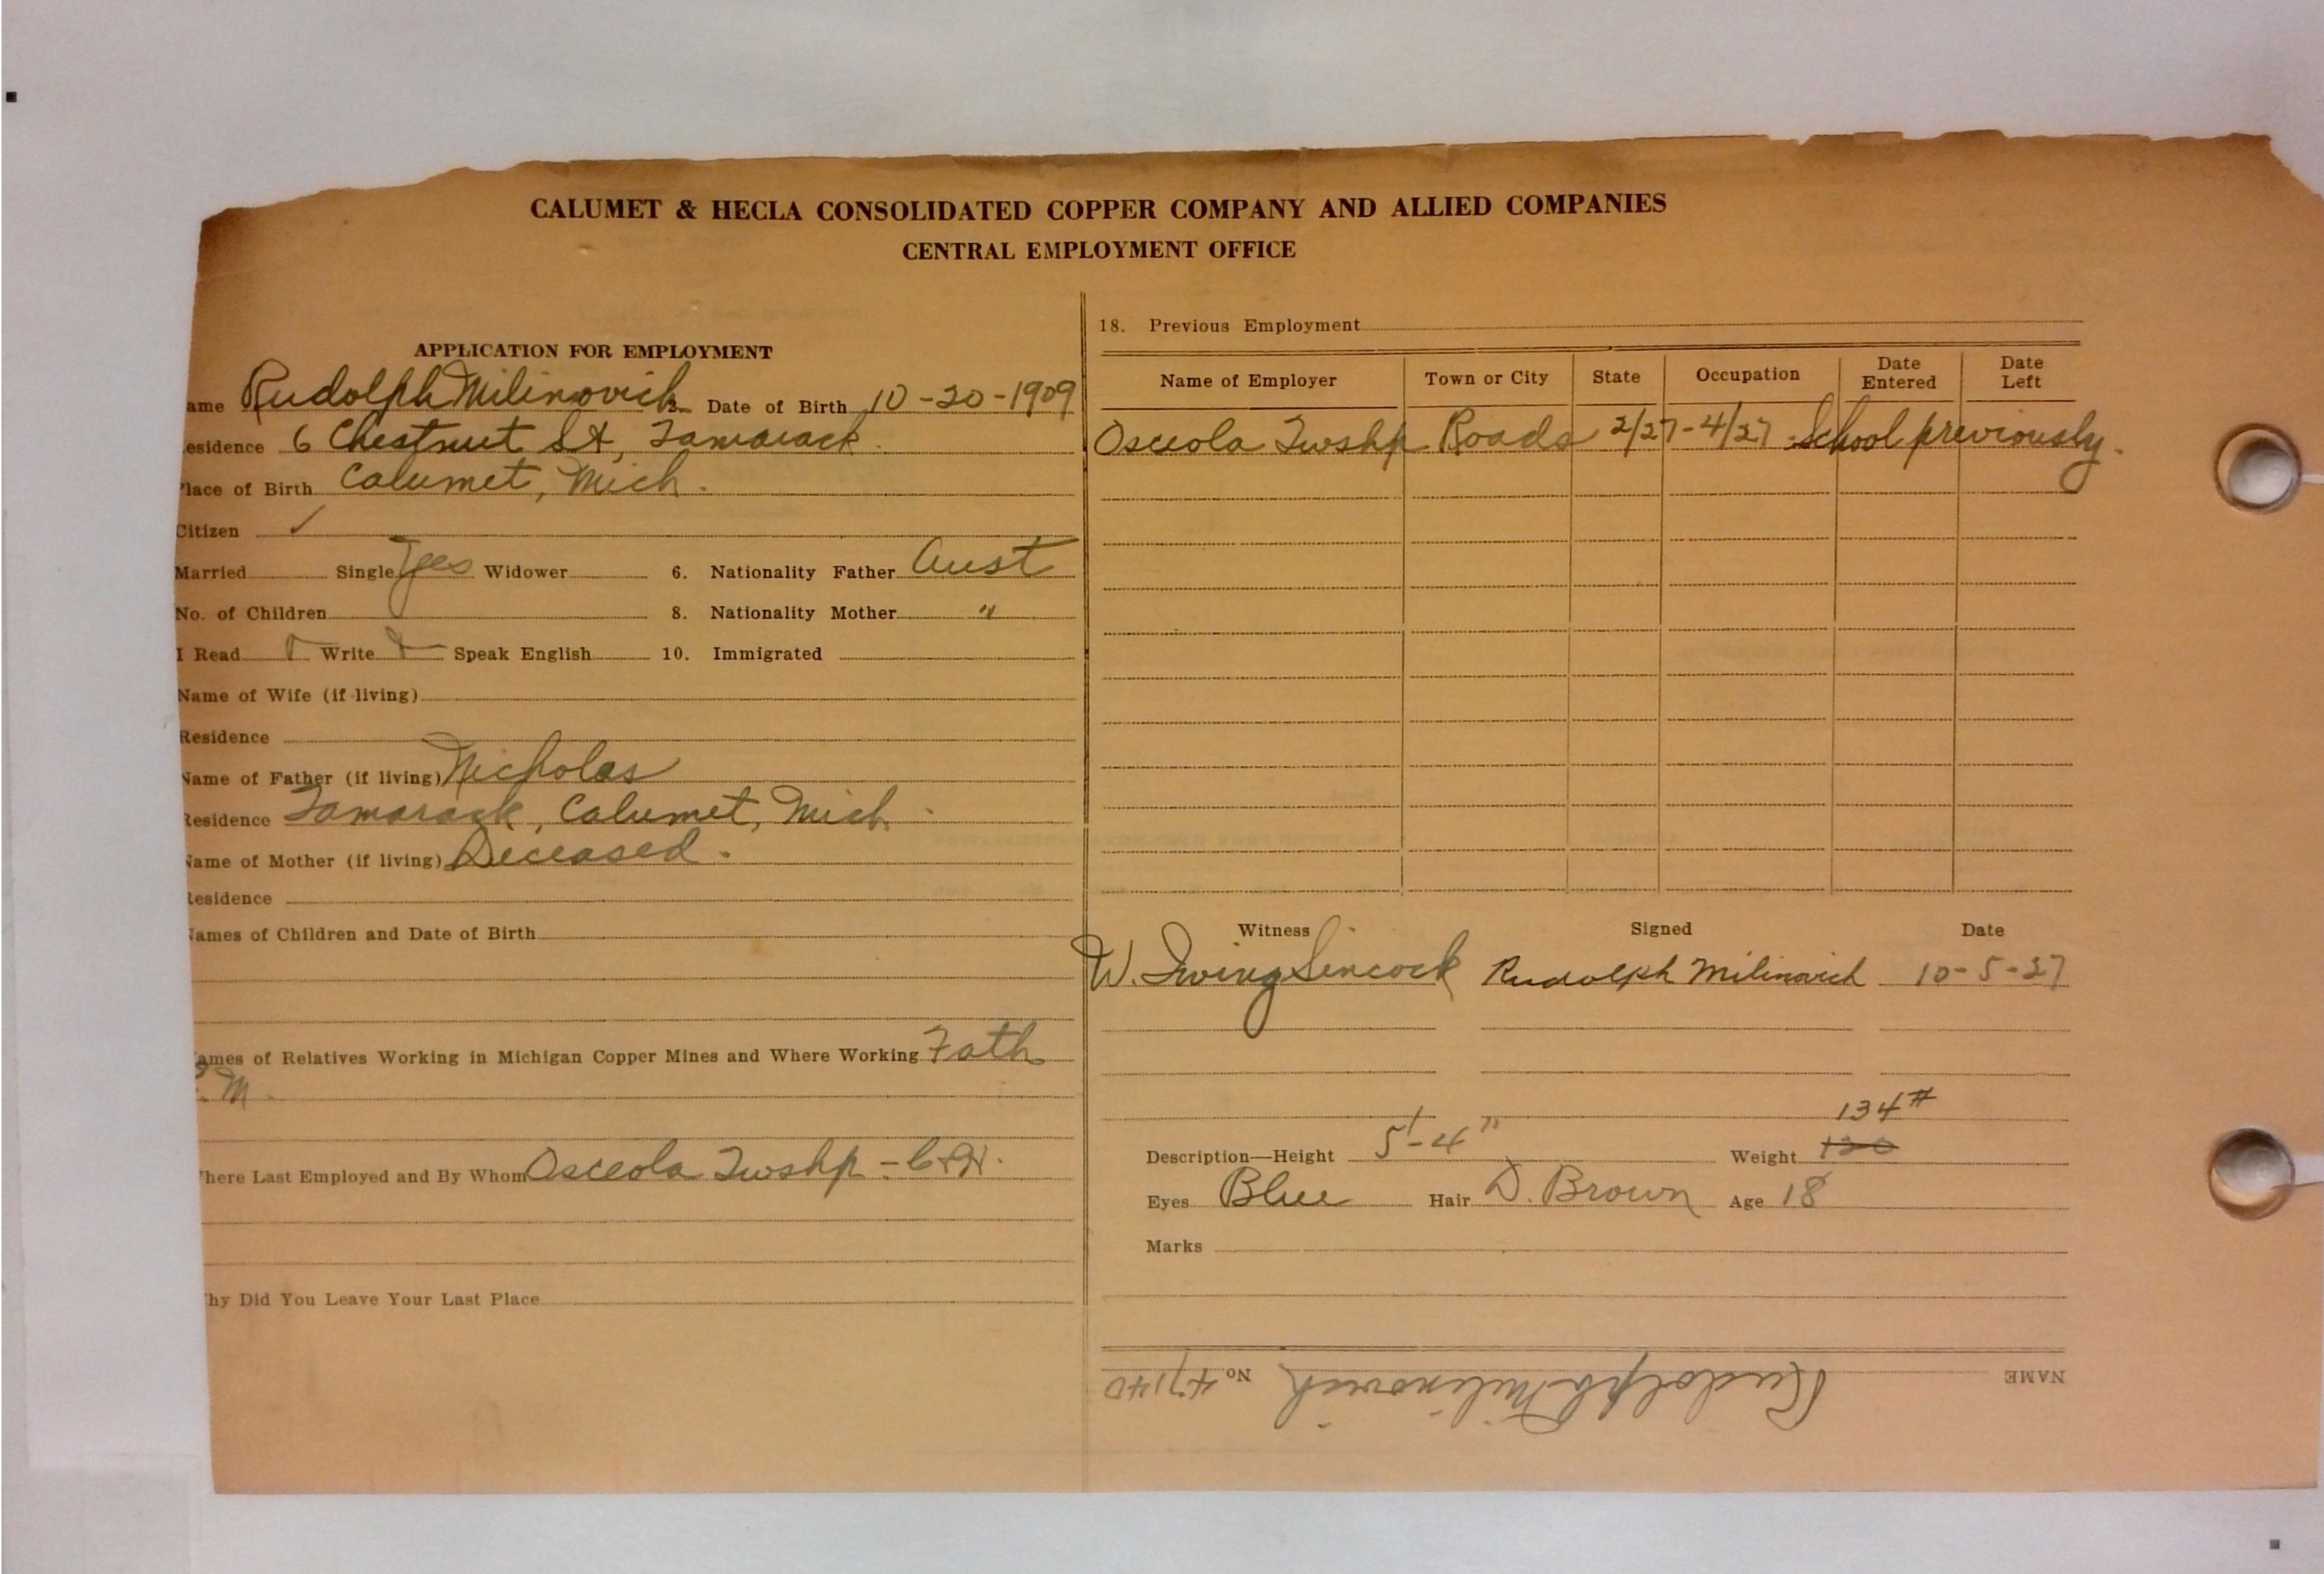 CALUMET & HECLA CONSOLIDATED COPPER COMPANY AND ALLIED COMPANIES
CENTRAL EMPLOYMENT OFFICE
APPLICATION FOR EMPLOYMENT
ame Rudolph Milinovich 2. Date of Birth 10-20-1909
esidence 6 Chestnut St, Tamarack.
lace of Birth Calumet, Mich.
Citizen ✓
Married Single Yes Widower 6. Nationality Father Aust
No. of Children 8. Nationality Mother "
I Read Write Speak English 10. Immigrated
Name of Wife (if living)
Residence
Name of Father (if living) Nicholas
Residence Tamarack, Calumet, Mich.
Name of Mother (if living) Deceased.
Residence
Names of Children and Date of Birth
ames of Relatives Working in Michigan Copper Mines and Where Working Fath.
M.
here Last Employed and By Whom Osceola Twshp - C&H.
hy Did You Leave Your Last Place
18. Previous Employment
Name of Employer Town or City State Occupation Date Entered Date Left
Osceola Twshp Roads 2/27-4/27 - School previously.
Witness Signed Date
W. Irving Sincock Rudolph Milinovich 10-5-27
134#
Description—Height 5'-4" Weight 120
Eyes Blue Hair D. Brown Age 18
Marks
NAME Rudolph Milinovich No. 47140